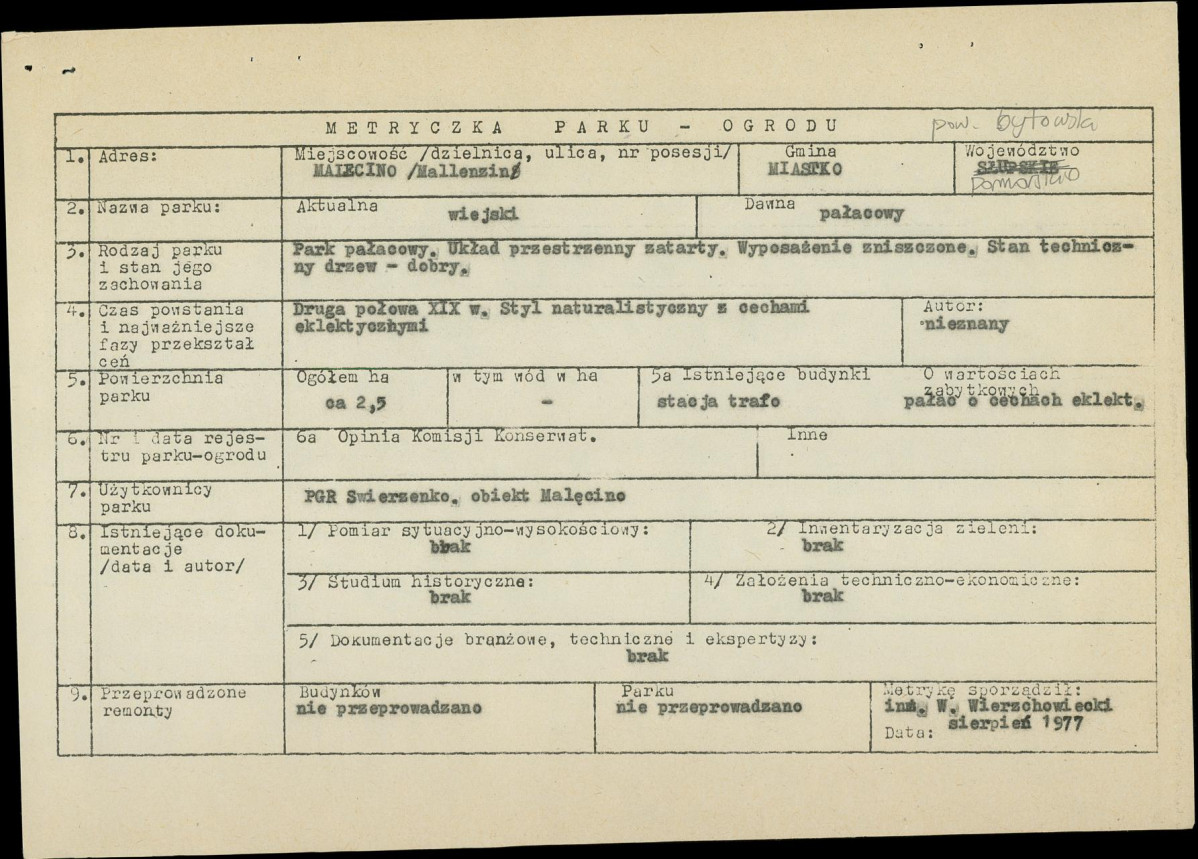 METRYCZKA PARKU - OGRODU pow. bytowski
1. Adres: Miejscowość /dzielnica, ulica, nr posesji/ Gmina Województwo
MALĘCINO /Mallenzin/ MIASTKO SŁUPSKIE
pomorskie
2. Nazwa parku: Aktualna Dawna
wiejski pałacowy
3. Rodzaj parku Park pałacowy. Układ przestrzenny zatarty. Wyposażenie zniszczone. Stan technicz-
i stan jego ny drzew - dobry.
zachowania
4. Czas powstania Druga połowa XIX w. Styl naturalistyczny z cechami Autor:
i najważniejsze eklektycznymi nieznany
fazy przekształ
ceń
5. Powierzchnia Ogółem ha w tym wód w ha 5a Istniejące budynki O wartościach
parku zabytkowych
ca 2,5 - stacja trafo pałac o cechach eklekt.
6. Nr i data rejes- 6a Opinia Komisji Konserwat. Inne
tru parku-ogrodu
7. Użytkownicy PGR Swierzenko. obiekt Malęcino
parku
8. Istniejące doku- 1/ Pomiar sytuacyjno-wysokościowy: 2/ Inwentaryzacja zieleni:
mentacje brak brak
/data i autor/
3/ Studium historyczne: 4/ Założenia techniczno-ekonomiczne:
brak brak
5/ Dokumentacje branżowe, techniczne i ekspertyzy:
brak
9. Przeprowadzone Budynków Parku Metrykę sporządził:
remonty nie przeprowadzano nie przeprowadzano inż. W. Wierzchowiecki
Data: sierpień 1977